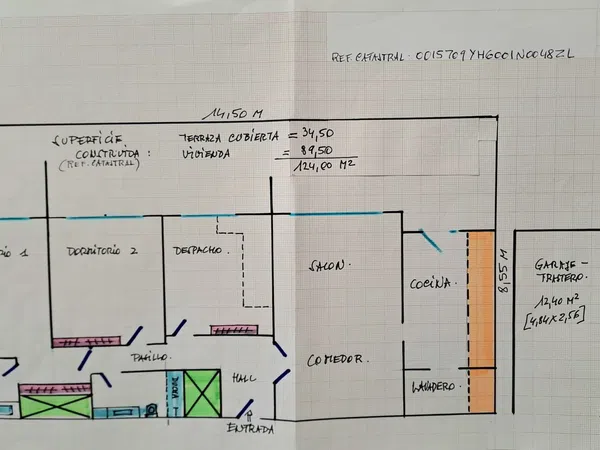 REF. CATASTRAL: 0015709YH6001N0048ZL
14,50 M
SUPERFICIE TERRAZA CUBIERTA = 34,50
CONSTRUIDA: VIVIENDA = 89,50
(REF. CATASTRAL) 124,00 M²
DORMITORIO 2
DESPACHO.
SALON.
COCINA.
8,55 M
GARAJE-
TRASTERO.
12,40 M²
[4,84 x 2,56]
PASILLO.
COMEDOR.
HALL
LAVADERO.
ENTRADA